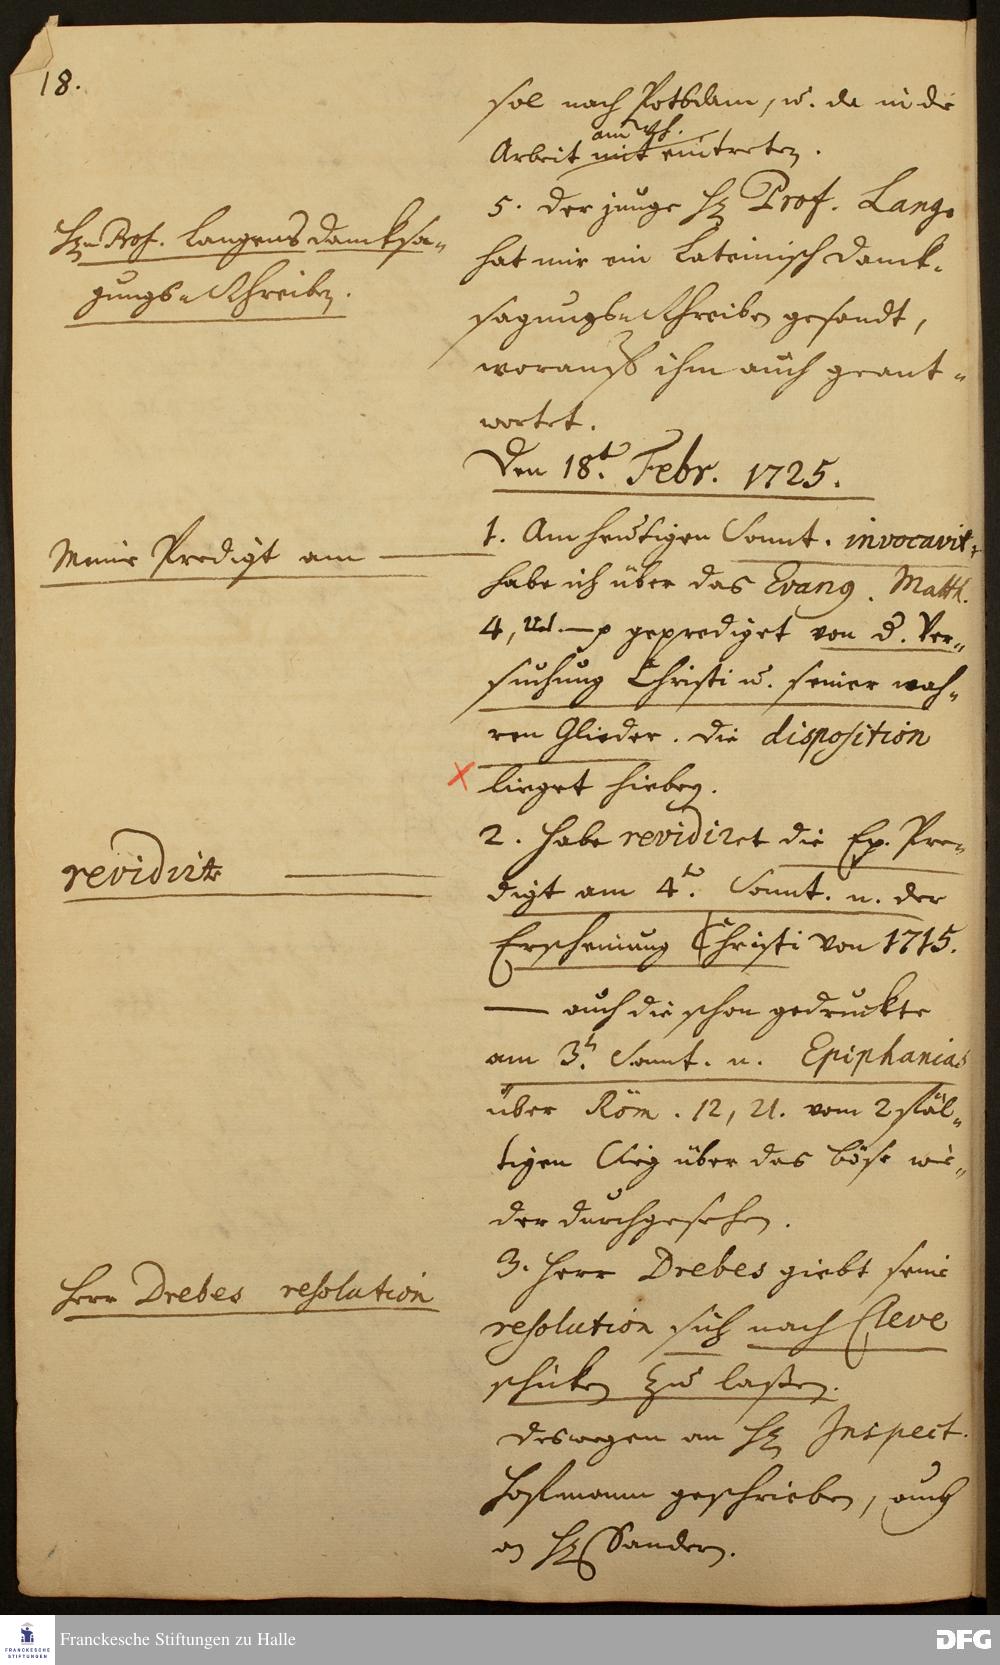 18.
sol nach Potsdam, u. da in die
Arbeit mit eintreten.
5. der junge H. Prof. Lange
hat mir ein Lateinisch Danck-
sagungs-Schreiben gesandt,
worauff ihm auch geant-
wortet.
Hn. Prof. Langens dancksa-
gungs-Schreiben.
Den 18t. Febr. 1725.
Meine Predigt am
1. Am heutigen Sonnt. invocavit
habe ich über das Evang. Matth.
4, geprediget von d. Ver-
suchung Christi u. seiner wah-
ren Glieder. die disposition
lieget hiebey.
revidirte
2. habe revidiret die Ep. Pre-
digt am 4t. Sonnt. n. der
Erscheinung Christi von 1715.
— auch die schon gedruckte
am 3t. Sonnt. n. Epiphanias
über Röm. 12, 21. vom 2
tigen Sieg über das böse wie-
der durchgesehen.
Herr Drebes resolution
3. Herr Drebes giebt seine
resolution sich nach Cleve
schicken zu laßen.
deswegen an H. Inspect.
geschrieben, auch
an H. Sandern.
Franckesche Stiftungen zu Halle
FRANCKESCHE
STIFTUNGEN
DFG